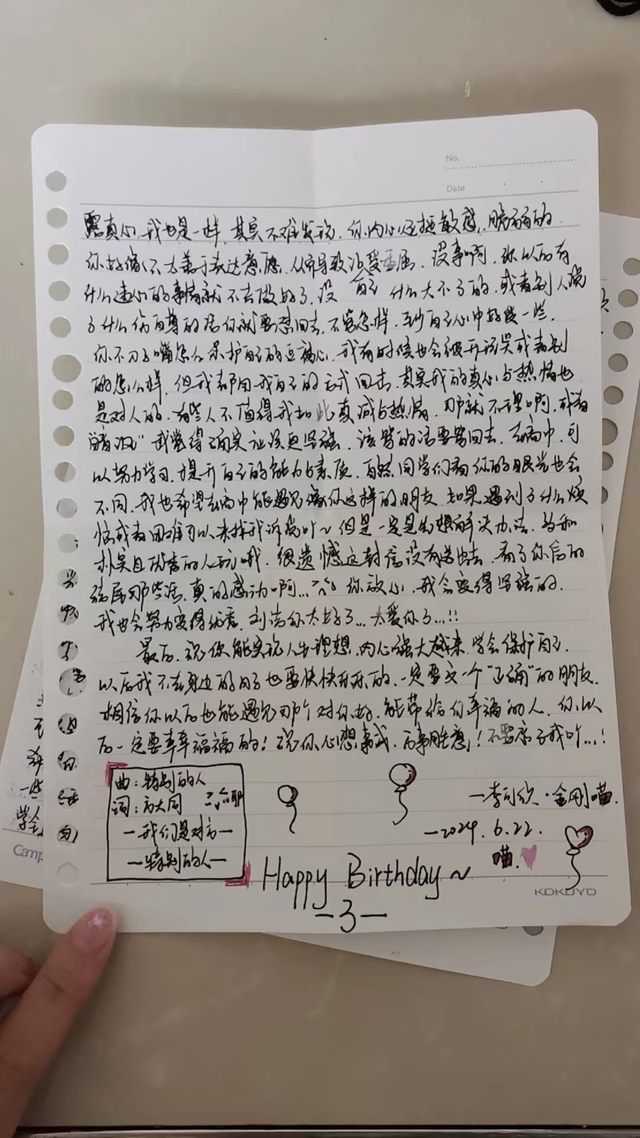 No.
Date
露真心，我也是一样，其实不难发现，你内心还挺敏感，脆弱的
你好像不太善于表达意愿，从而导致没受委屈，没事啊，你以后有
什么违心的事情就不去做好了，没什么大不了的，或者别人说
了什么伤自尊的话你就要怼回去，不管怎样，至少自己心中好受一些，
你不刀子嘴怎么保护自己的豆腐心，我有时候也会被开玩笑或者别
的怎么样，但我都用我自己的方式回去，其实我的真心与热情也
是对人的，有些人不值得我如此真诚与热情，那就不理啊，
我觉得确实让我更坚强，该骂的话要骂回去，高中，可
以努力学习，提升自己的能力与素质，自然同学们看你的眼光也会
不同，我也希望在高中能遇见像你这样的朋友，如果遇到了什么烦
恼或者困难可以来找我诉苦吖~但是一定是先想解决办法，多和
朴实且优秀的人玩哦，很遗憾这封信没有送出去，看了你信的
结尾那些话，真的感动啊...你放心，我会变得坚强的，
我也会努力变得优秀，太好了...太爱你了...!!
最后，祝你能实现人生理想，内心强大起来，学会保护自己，
以后我不在身边的日子也要快快乐乐的，一定要交一个"正确"的朋友，
相信你以后也能遇见那个对你好，能带给你幸福的人，你以
后一定要幸幸福福的！祝你心想事成，万事胜意！不要忘了我吖...！
曲：特别的人
词：方大同
一我们是对方一
一特别的人一
一李可欣·金刚喵.
一2024.6.22.
喵.
Happy Birthday~
-3-
KOKUYO
Camp